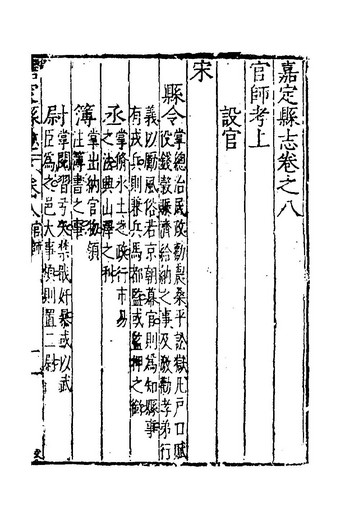 嘉定縣志卷之八
官師考上
設官
宋
縣令掌總治民政勸課農桑平訟獄凡戶口賦
役錢穀賑濟給納之事及敦勸孝弟行
義以勵風俗若京朝幕官則為知縣事
有戎兵則兼兵馬都監或監押之銜
丞掌修水土之政行市易
之法興山澤之利
簿掌出納官物領
注簿書之事
尉掌閱習弓矢禁戢奸暴或以武
臣為之邑大事煩則置二尉